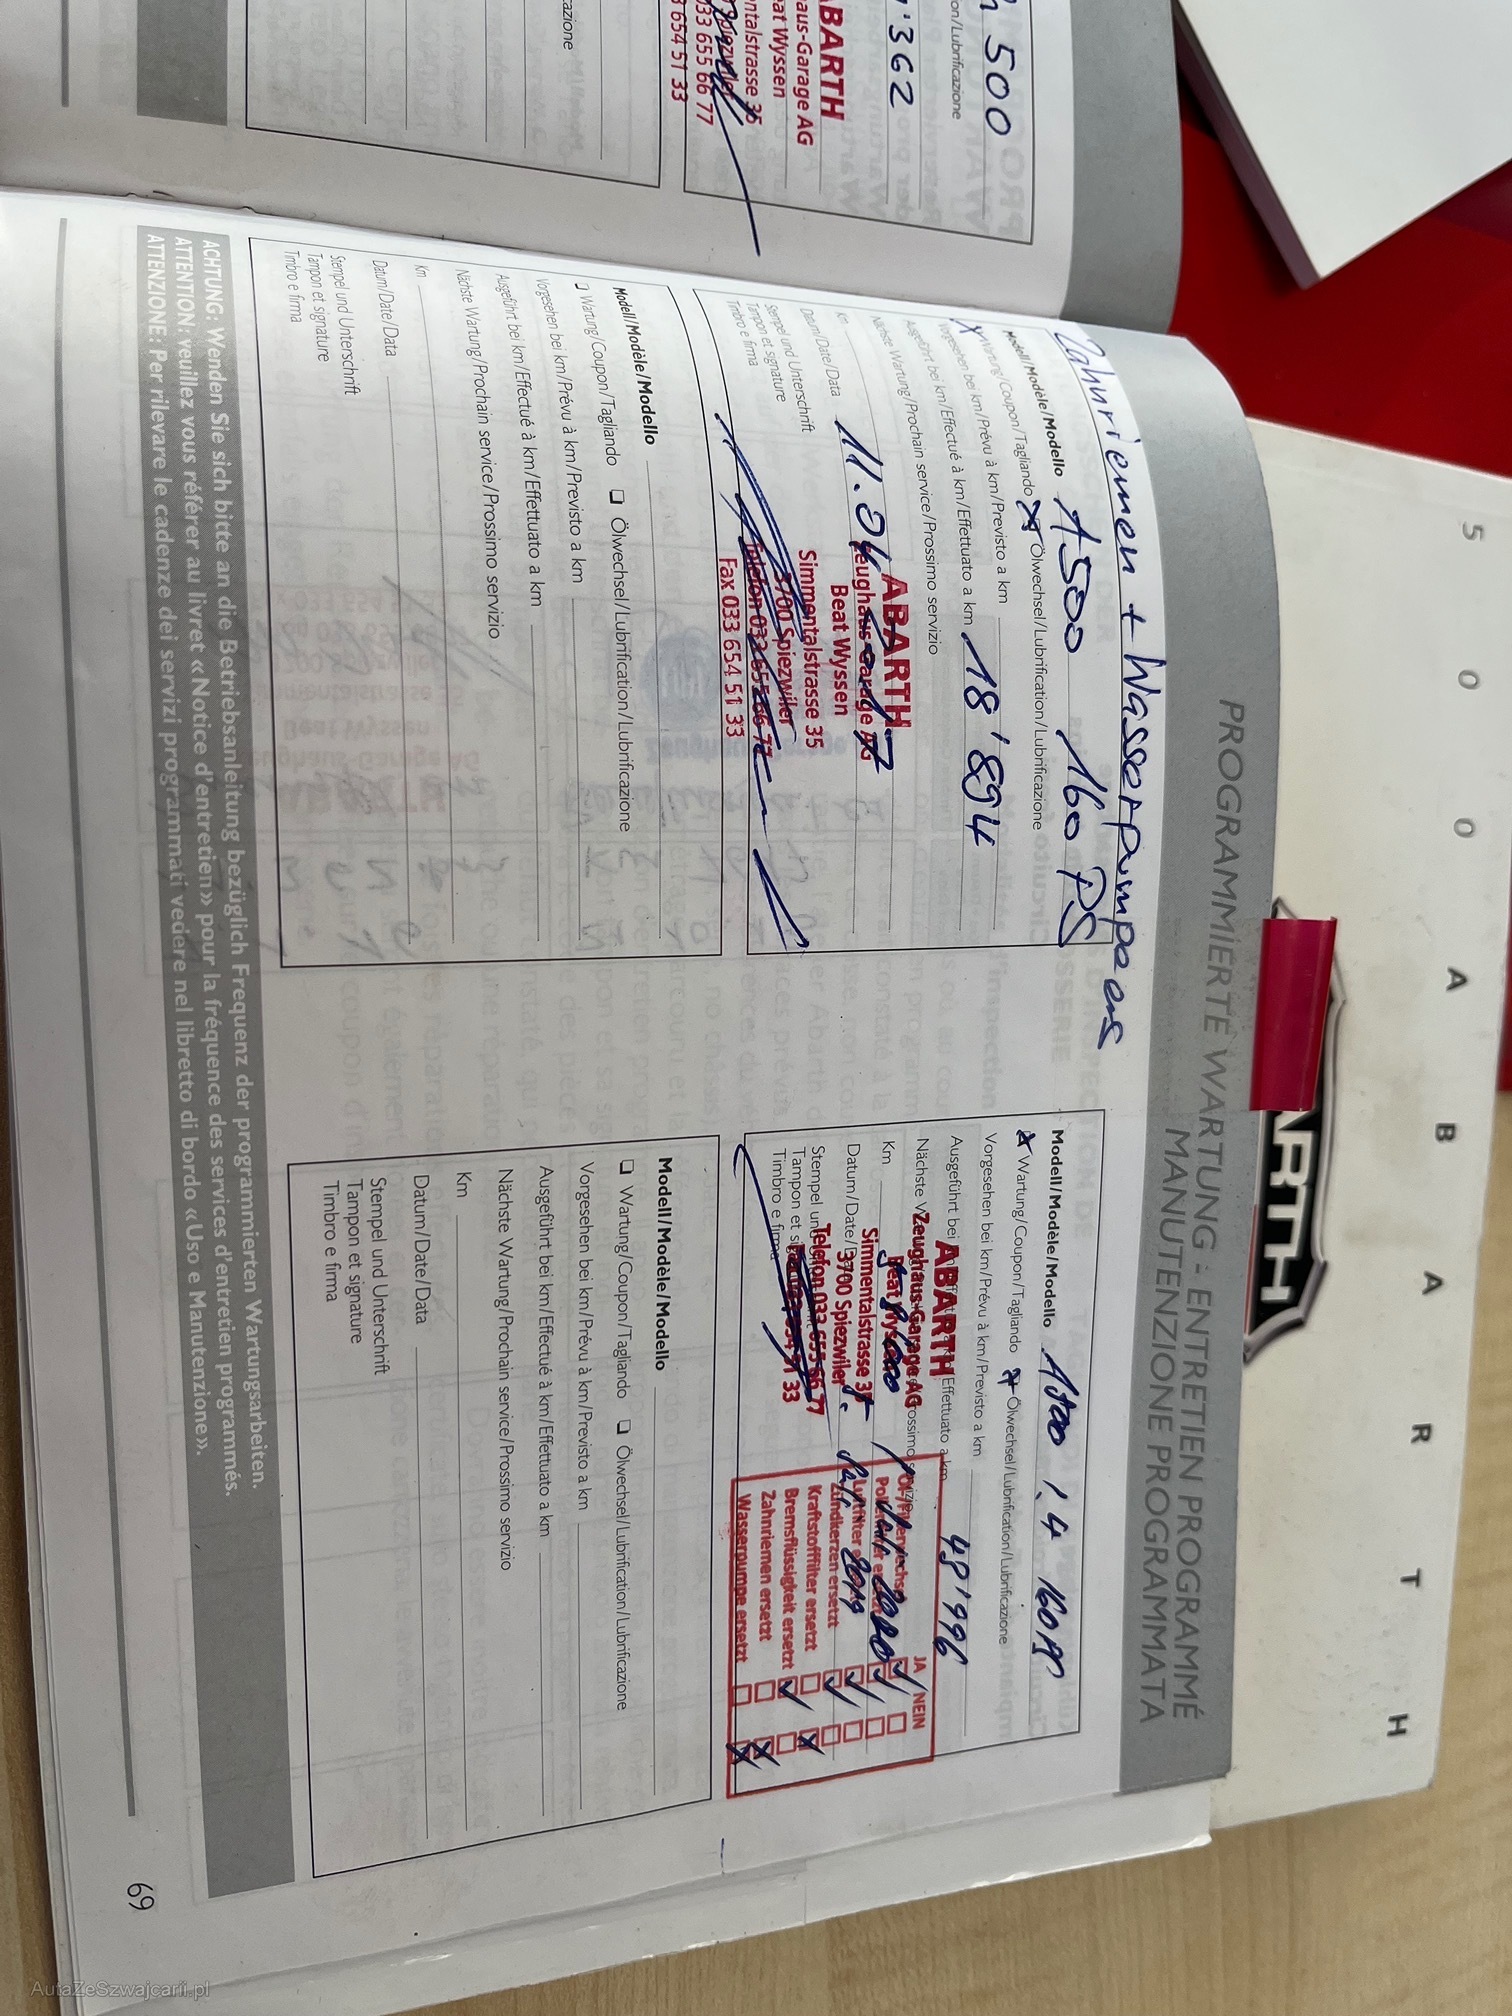 500
on/Lubrificazione
'362
ABARTH
haus-Garage AG
eat Wyssen
ntalstrasse 35
Spiezwiler
033 655 66 77
3 654 51 33
azione
5 0 0 A B A R T H
ARTH
PROGRAMMIERTE WARTUNG - ENTRETIEN PROGRAMMÉ
MANUTENZIONE PROGRAMMATA
Zahnriemen + Wasserpumpe
Modell/Modèle/Modello A500 160 PS
Wartung/Coupon/Tagliando Ölwechsel/Lubrification/Lubrificazione
Vorgesehen bei km/Prévu à km/Previsto a km
Ausgeführt bei km/Effectué à km/Effettuato a km 18'894
Nächste Wartung/Prochain service/Prossimo servizio
Km
Datum/Date/Data 11.04.
Stempel und Unterschrift
Tampon et signature
Timbro e firma
ABARTH
Zeughaus-Garage AG
Beat Wyssen
Simmentalstrasse 35
3700 Spiezwiler
Telefon 033 655 66 77
Fax 033 654 51 33
Modell/Modèle/Modello
❑ Wartung/Coupon/Tagliando ❑ Ölwechsel/Lubrification/Lubrificazione
Vorgesehen bei km/Prévu à km/Previsto a km
Ausgeführt bei km/Effectué à km/Effettuato a km
Nächste Wartung/Prochain service/Prossimo servizio
Km
Datum/Date/Data
Stempel und Unterschrift
Tampon et signature
Timbro e firma
Modell/Modèle/Modello A500 1.4 160PS
Wartung/Coupon/Tagliando Ölwechsel/Lubrification/Lubrificazione
Vorgesehen bei km/Prévu à km/Previsto a km
Ausgeführt bei Effettuato a km 48'996
Nächste rossimo servizio
Km
Datum/Date/
Stempel un
Tampon et si
Timbro e firma
ABARTH
Zeughaus-Garage AG
Beat Wyssen
Simmentalstrasse 35
3700 Spiezwiler
Telefon 033 655 66 77
Juli 2020
Juli 2019
JA NEIN
Luftfilter
Zündkerzen ersetzt
Kraftstofffilter ersetzt
Bremsflüssigkeit ersetzt
Zahnriemen ersetzt
Wasserpumpe ersetzt
Modell/Modèle/Modello
❑ Wartung/Coupon/Tagliando ❑ Ölwechsel/Lubrification/Lubrificazione
Vorgesehen bei km/Prévu à km/Previsto a km
Ausgeführt bei km/Effectué à km/Effettuato a km
Nächste Wartung/Prochain service/Prossimo servizio
Km
Datum/Date/Data
Stempel und Unterschrift
Tampon et signature
Timbro e firma
ACHTUNG: Wenden Sie sich bitte an die Betriebsanleitung bezüglich Frequenz der programmierten Wartungsarbeiten.
ATTENTION: veuillez vous référer au livret «Notice d'entretien» pour la fréquence des services d'entretien programmés.
ATTENZIONE: Per rilevare le cadenze dei servizi programmati vedere nel libretto di bordo «Uso e Manutenzione».
69
AutaZeSzwajcarii.pl